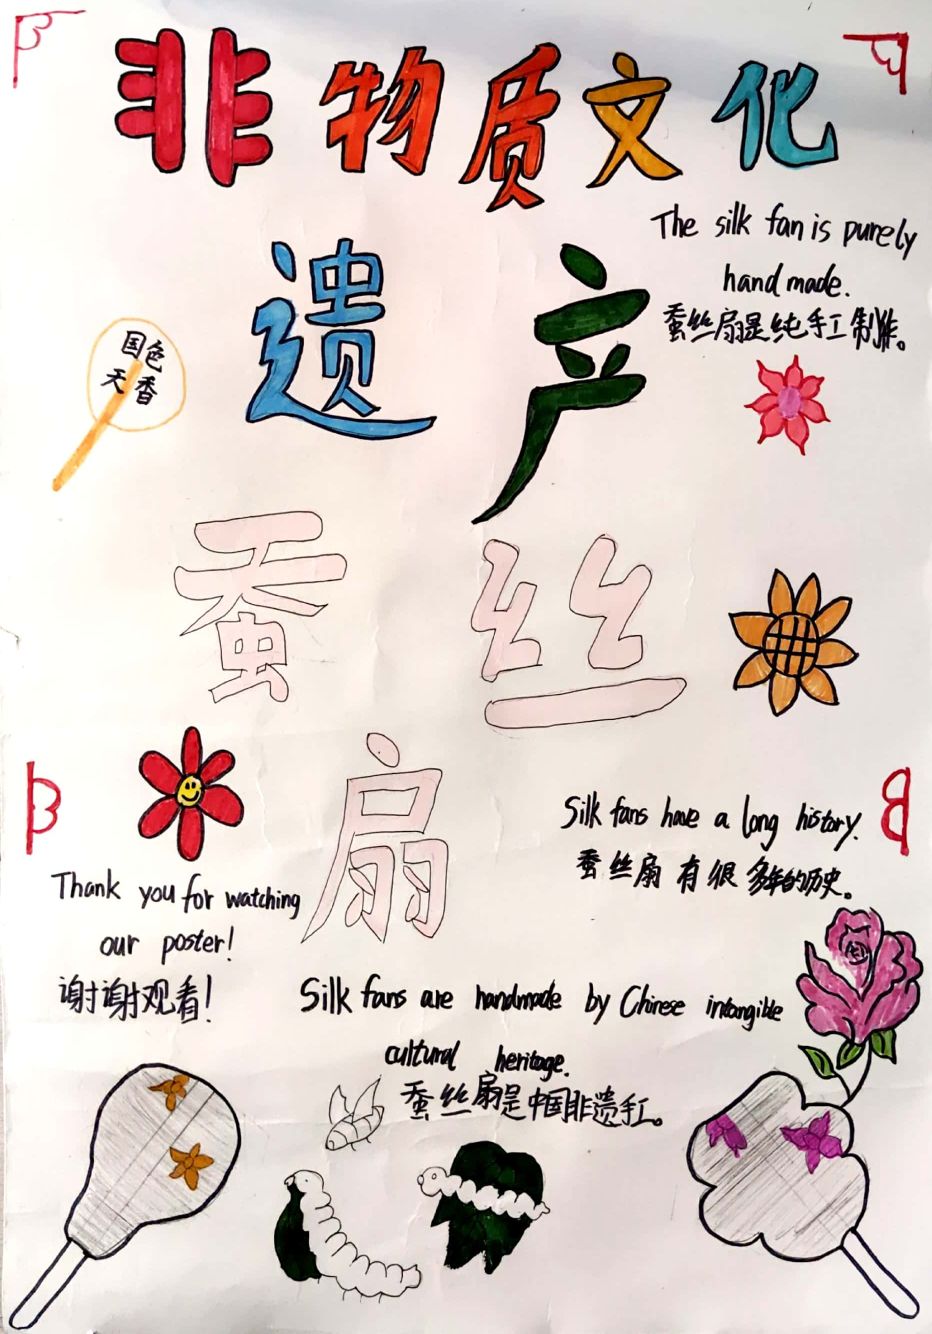 非物质文化
遗产
The silk fan is purely
hand made.
蚕丝扇是纯手工制作。
国色
天香
蚕丝
扇
Silk fans have a long history.
蚕丝扇有很多年的历史。
Thank you for watching
our poster!
谢谢观看!
Silk fans are handmade by Chinese intangible
cultural heritage.
蚕丝扇是中国非遗手工。